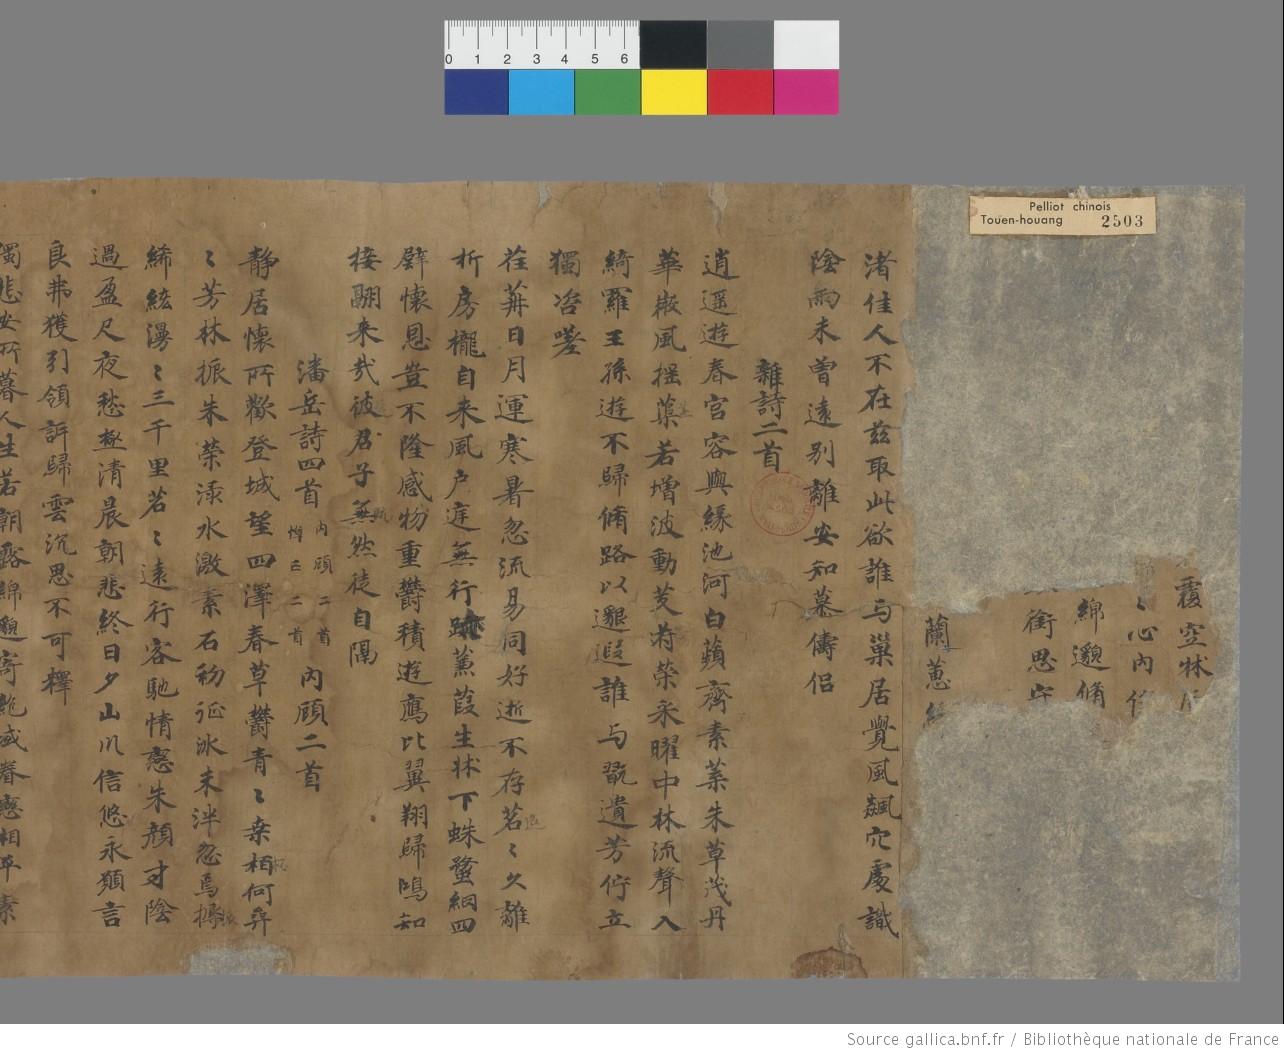 Pelliot chinois
Touen-houang 2503
0 1 2 3 4 5 6
覆空林
〻心內
綿邈脩
銜思守
蘭蕙緣
渚佳人不在茲取此欲誰与巢居覺風飆穴處識
陰雨未曾遠別離安知慕儔侶
雜詩二首
逍遥遊春宮容與緣池河白蘋齊素葉朱草茂丹
華微風揺茞若增波動芰荷榮采曜中林流聲入
綺羅王孫遊不歸脩路以邈遐誰与翫遺芳佇立
獨咨嗟
荏苒日月運寒暑忽流易同好逝不存苕〻久離
析房櫳自来風户庭無行跡蒹葭生牀下蛛蝥網四
壁懷思豈不隆感物重欝積遊鴈比翼翔歸鴻知
接翮来哉彼君子無然徒自隔
潘岳詩四首 內顧二首 悼亡二首 內顧二首
静居懷所歡登城望四澤春草欝青〻桒柘何弈
〻芳林振朱榮渌水激素石初征冰未泮忽焉
絺綌漫〻三千里苕〻遠行客馳情戀朱顔寸陰
過盈尺夜愁極清晨朝悲終日夕山川信悠永願言
良弗獲引領訊歸雲沉思不可釋
獨悲安所慕人生若朝露綿邈寄絶域眷戀想平素
Source gallica.bnf.fr / Bibliothèque nationale de France